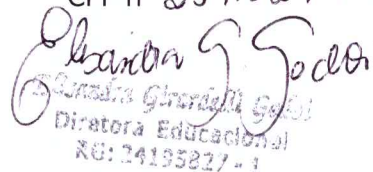 Elisandra G Godoi
Elisandra Girardelli Godoi
Diretora Educacional
RG: 24195827-1